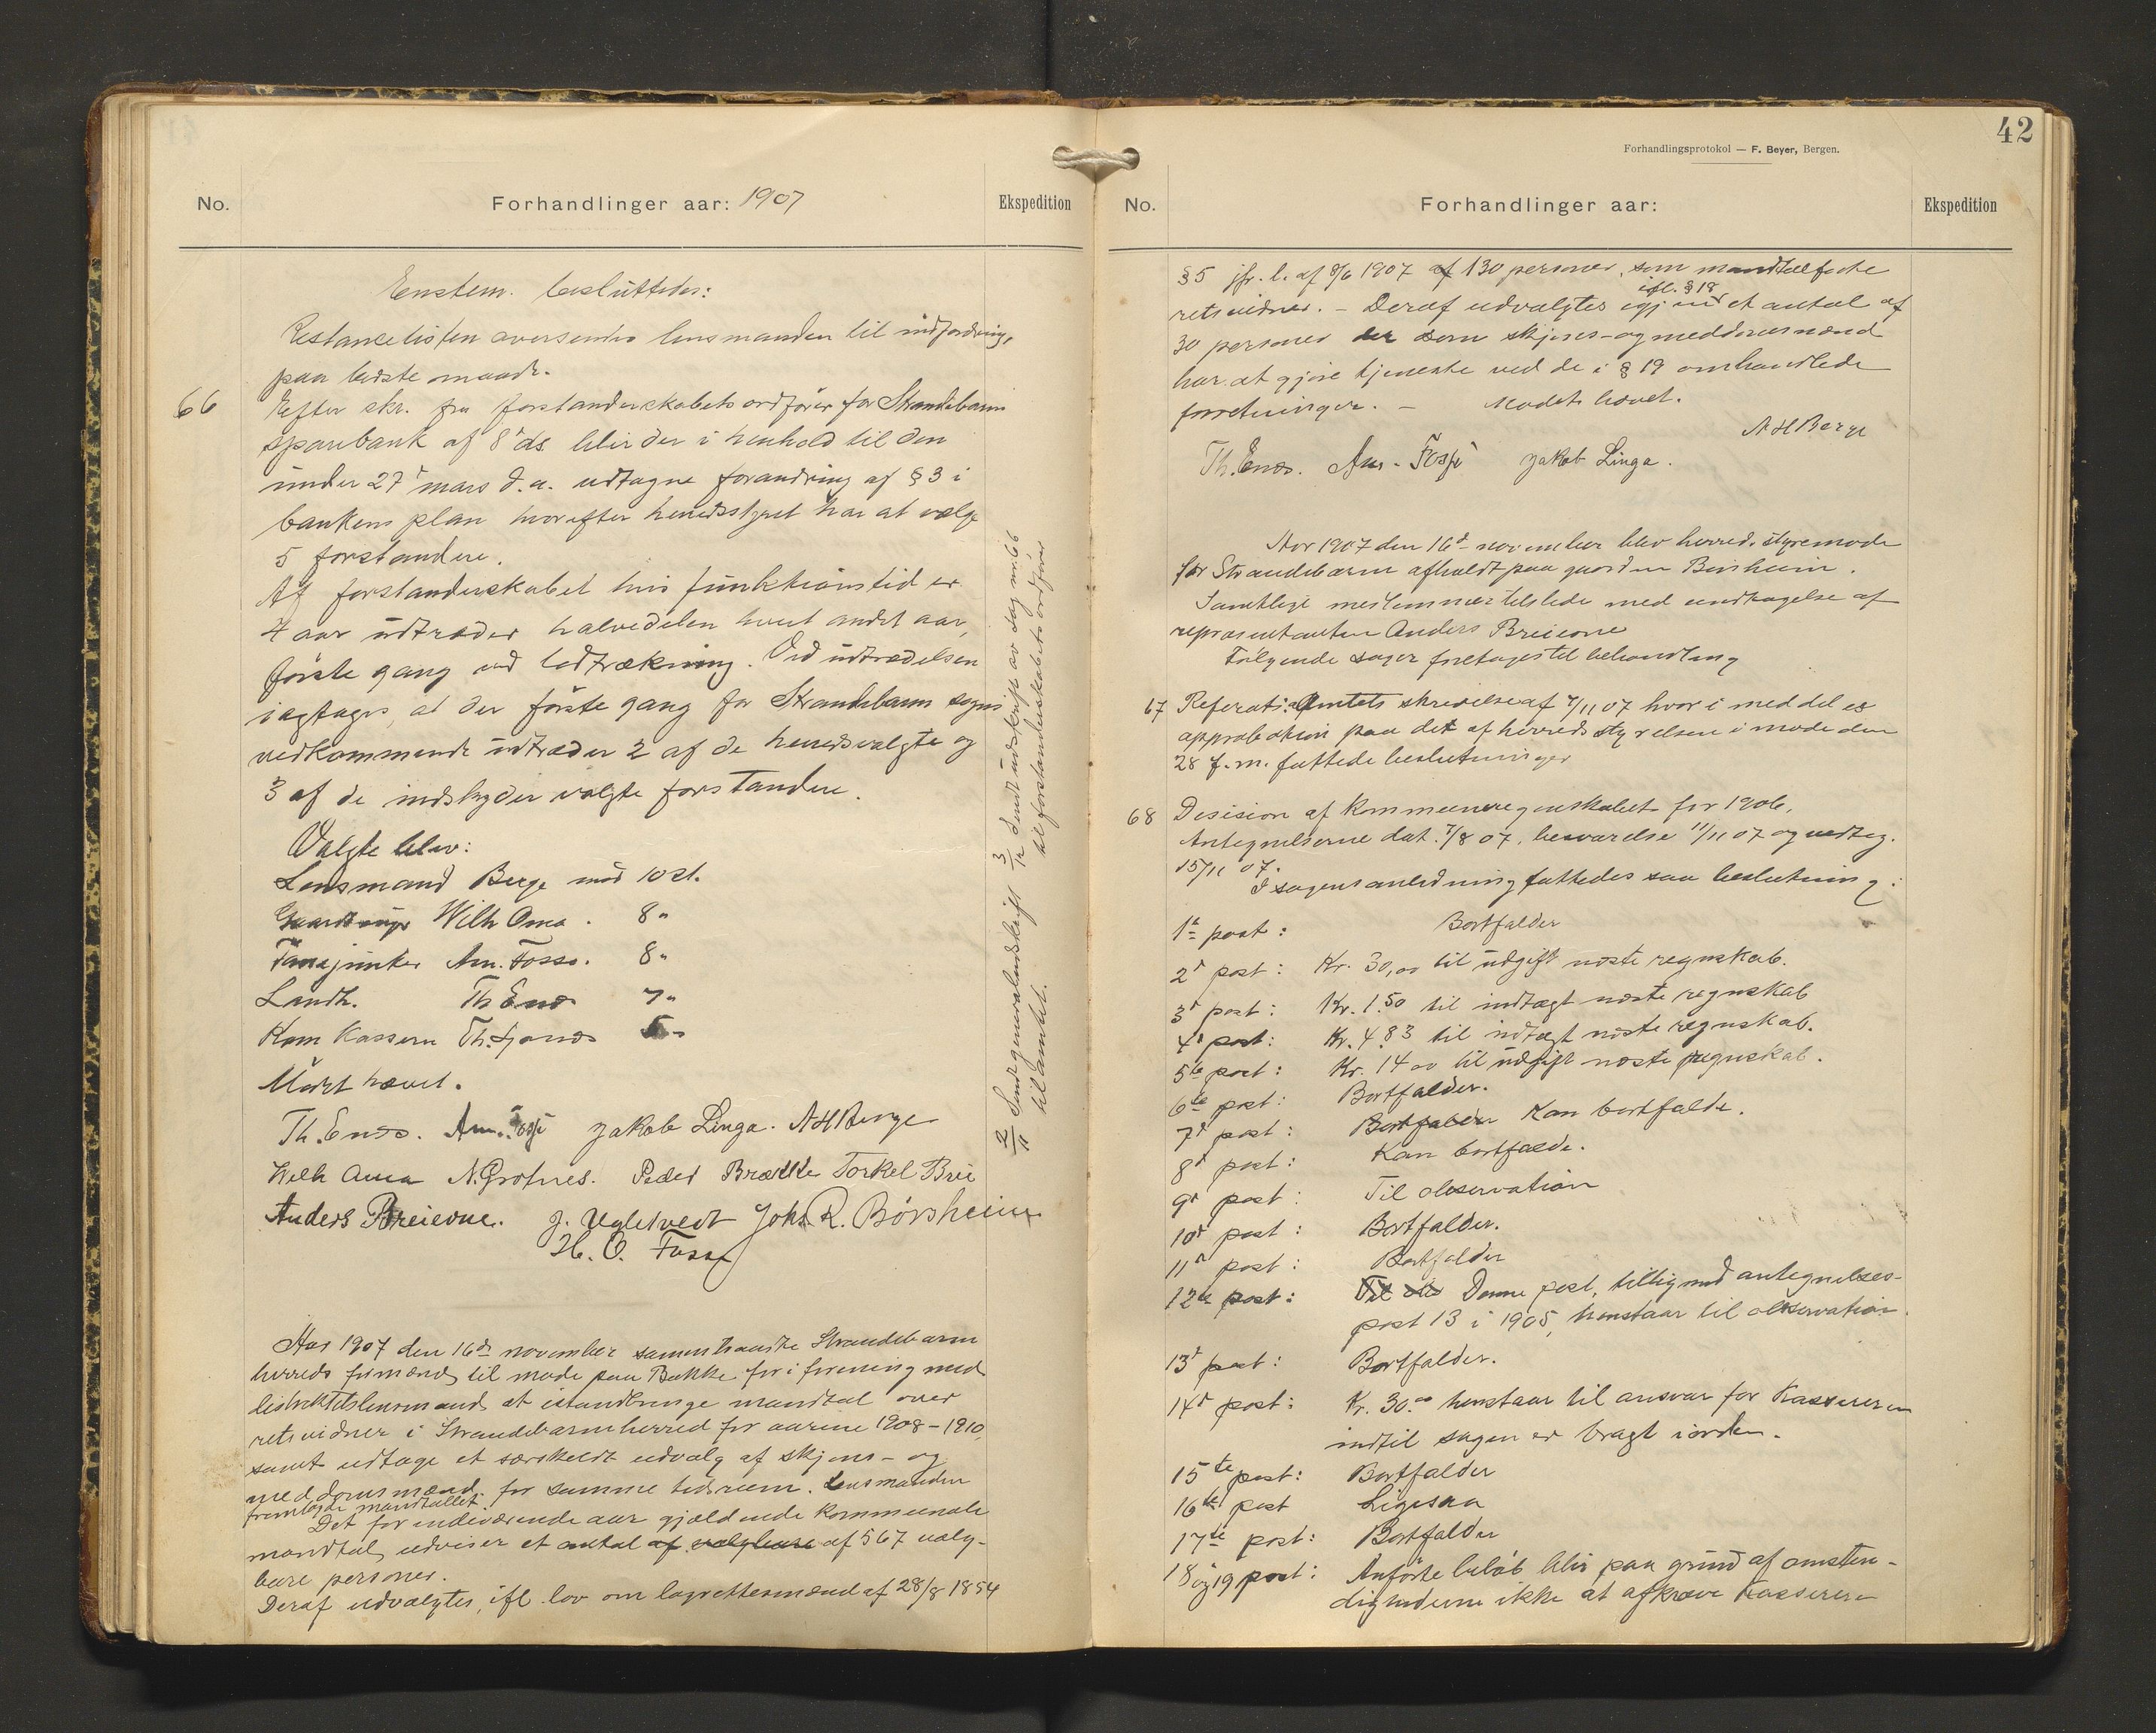 No.
Forhandlinger aar: 1907
Ekspedition
Enstem. besluttedes:
Restancelisten oversendes lensmanden til indfordring
paa bedste maade.
66 Efter skr. fra forstanderskabets ordfører for Strandebarm
sparebank af 8de ds. blir der i henhold til den
under 27de mars d.a. udtagne forandring af § 3 i
bankens plan hvorefter herredsstyret har at vælge
5 forstandere.
Af forstanderskabet hvis funktionstid er
4 aar udtræder halvedelen hvert andet aar,
første gang ved lodtrækning. Ved udtrædelsen
iagtages, at der første gang for Strandebarm sogns
vedkommende udtræder 2 af de herredsvalgte og
3 af de indskyder valgte forstandere.
Valgte blev:
Lensmand Berge med 10 st.
Gaardbruger Wilh Oma. 8 "
Fanejunker Am. Fosse. 8 "
Landh. Th Enes 7 "
Kom Kasserer Th. Fones 5 "
Mødet hævet.
Th. Enes. Am. Fosse Jakob Linga. A H Berge
Wilh Oma N. Grotnes. Peder Brække Torkel Brei
Anders Breievne. J. Ugletvedt Johs R. Børsheim
H. O. Fosse
2/11 Sendt generaludskrift
til amtet.
3/12 Sendt udskrift av sag nr. 66
til forstanderskabets ordfører
Aar 1907 den 16de november sammentraadte Strandebarm
herreds formænd til møde paa Bakke for i forening med
distriktslensmand at istandbringe mandtal over
retsvidner i Strandebarm herred for aarene 1908-1910,
samt udtage et særskildt udvalg af skjøns- og
meddomsmænd for samme tidsrum. Lensmanden
fremlagde mandtallet.
Det for indeværende aar gjældende kommunale
mandtal udviser et antal af valgbare af 567 valg-
bare personer.
Deraf udvalgtes, ifl. lov om lagrettesmænd af 28/8 1854
42
Forhandlingsprotokol — F. Beyer, Bergen.
No.
Forhandlinger aar:
Ekspedition
§ 5 jfr. l. af 8/6 1907 af 130 personer, som mandtalførte
ifl. § 18
retsvidner. - Deraf udvalgtes igjen et antal af
30 personer der som skjøns- og meddomsmænd
har at gjøre tjeneste ved de i § 19 omhandlede
forretninger. - Mødet hævet.
A H Berge
Th. Enes. Am. Fosse Jakob Linga.
Aar 1907 den 16de november blev herredsstyremøde
for Strandebarm afholdt paa gaarden Børsheim.
Samtlige medlemmer tilstede med undtagelse af
repræsentanten Anders Breievne
Følgende sager foretages til behandling
67 Referat: Amtets skrivelse af 7/11 07 hvori meddeles
approbation paa det af herredsstyrelsen i møde den
28 f.m. fattede beslutninger
68 Desision af kommuneregnskabet for 1906.
Antegnelserne dat. 7/8 07, besvarelse 11/11 07 og vedteg.
15/11 07.
I sagens anledning fattedes saa beslutning:
1te post: Bortfalder
2den post: Kr. 30,00 til udgift næste regnskab.
3die post: Kr. 1.50 til indtægt næste regnskab
4de post: Kr. 4.83 til indtægt næste regnskab.
5te post: Kr. 14 00 til udgift næste regnskab.
6te post: Bortfalder.
7de post: Bortfalder Kan bortfalde.
8de post: Kan bortfalde.
9de post: Til observation
10de post: Bortfalder.
11te post: Bortfalder
12te post: Til obs Denne post, tilligemed antegnelses-
post 13 i 1905, henstaar til observation.
13de post: Bortfalder.
14de post: Kr. 30.00 henstaar til ansvar for Kassereren
indtil sagen er bragt i orden.
15te post: Bortfalder
16te post Ligesaa
17te post: Bortfalder
18 og 19 post: Anførte beløb blir paa grund af omsten-
dighederne ikke at afkræve Kassereren